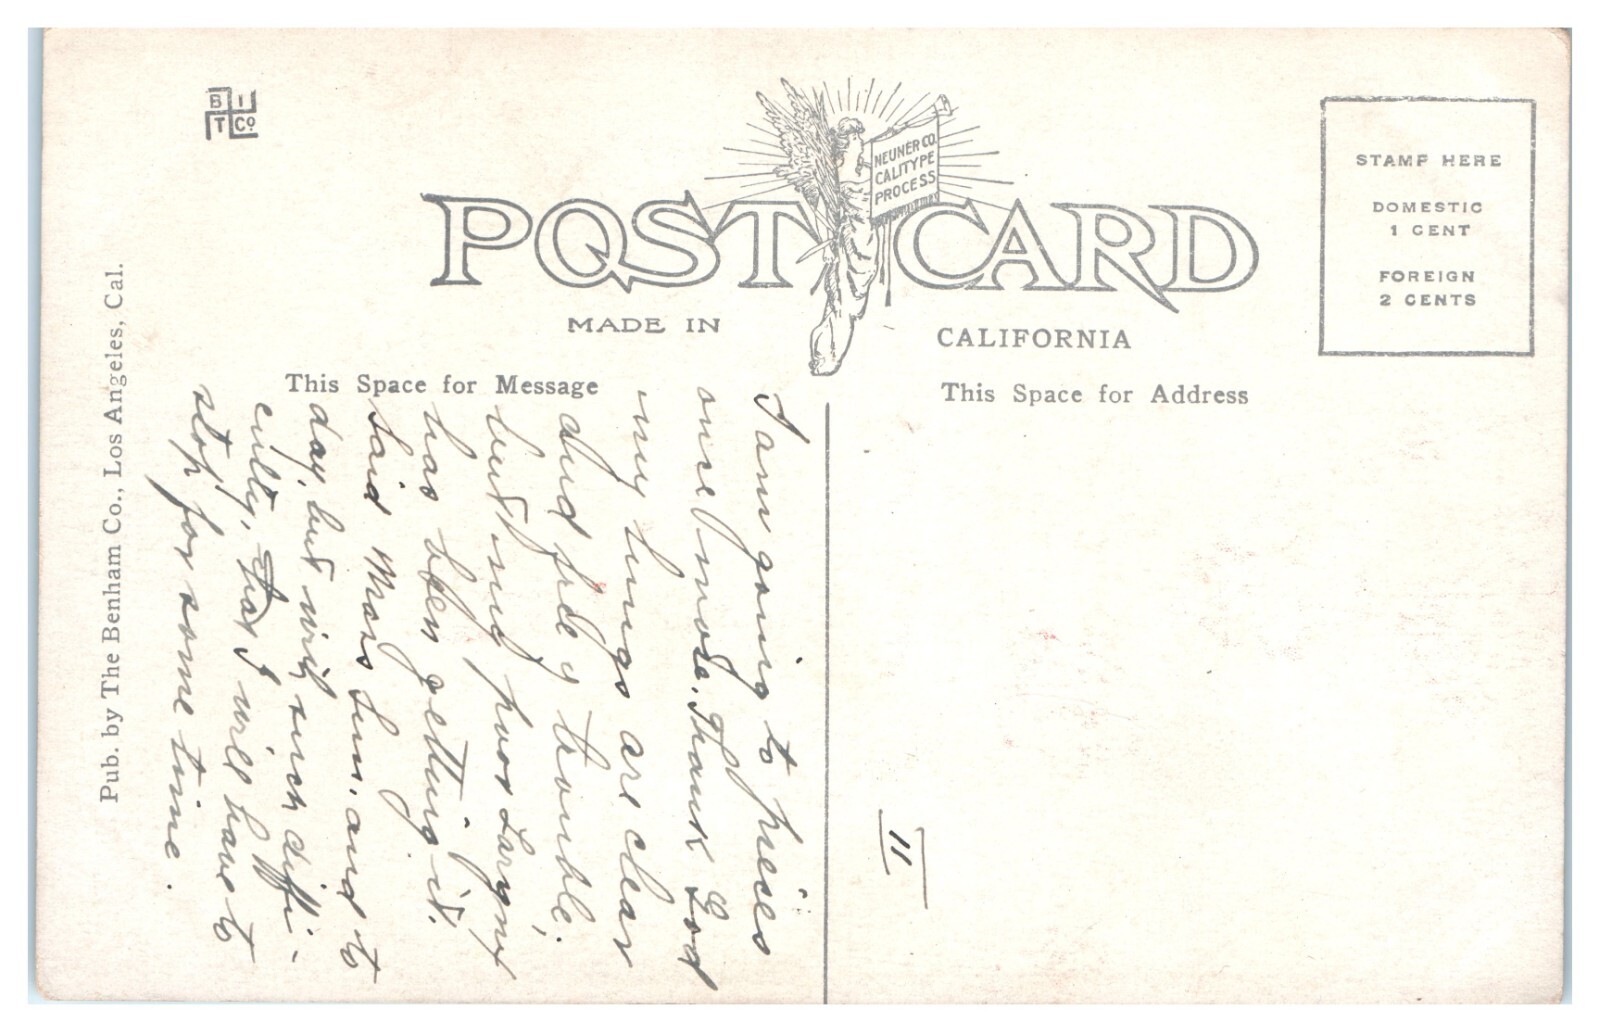 B I
T Co
NEUNER CO.
CALITYPE
PROCESS
POST CARD
MADE IN CALIFORNIA
STAMP HERE
DOMESTIC
1 CENT
FOREIGN
2 CENTS
This Space for Message
This Space for Address
Pub. by The Benham Co., Los Angeles, Cal.
I am going to preies
one more. Thank God
my lungs are clear
and free of trouble,
but my poor Larynx
has been getting it.
Said Mass Sun. and to
day, but with such diffi-
culty, that I will have to
stop for some time.
11